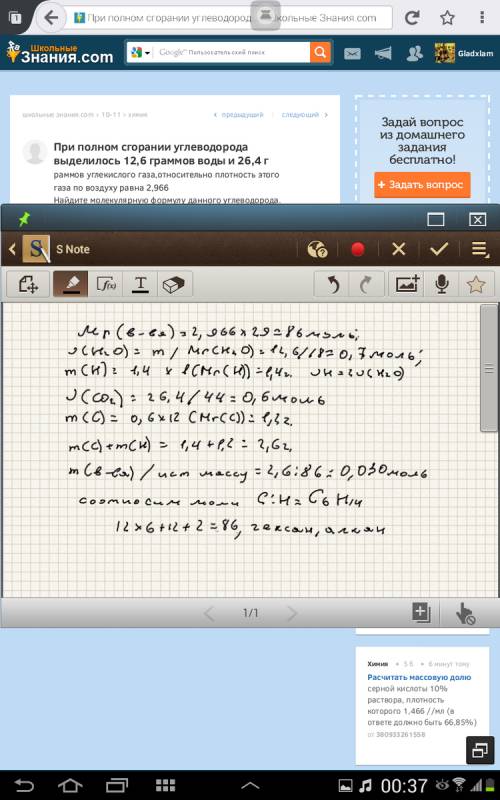 При полном сгорании углеводорода
Школьные Знания.com
Школьные
Знания.com
Google™ Пользовательский поиск
Gladxlam
школьные знания.com > 10-11 > химия
предыдущий
следующий
При полном сгорании углеводорода
выделилось 12,6 граммов воды и 26,4 г
раммов углекислого газа,относительно плотность этого
газа по воздуху равна 2,966
Найдите молекулярную формулу данного углеводорода.
Задай вопрос
из домашнего
задания
бесплатно!
+ Задать вопрос
S Note
f(x)
T
Mr(в-ва)=2,966×29=86 моль;
ν(H2O) = m / Mr(H2O)=12,6/18=0,7 моль;
m(H) = 1,4 × 1(Mr(H))=1,4г. νH=2ν(H2O)
ν(CO2) = 26,4 / 44 = 0,6 моль
m(C) = 0,6×12 (Mr(C))=1,2г.
m(C)+m(H) = 1,4+1,2=2,6г.
m(в-ва) / ист массу = 2,6:86=0,030 моль
соотносим моли C:H= C6H14
12×6+12+2=86, гексан, алкан
1/1
Химия
5 б
6 минут тому
Расчитать массовую долю
серной кислоты 10%
раствора, плотность
которого 1,466 //мл (в
ответе должно быть 66,85%)
от 380933261558
00:37